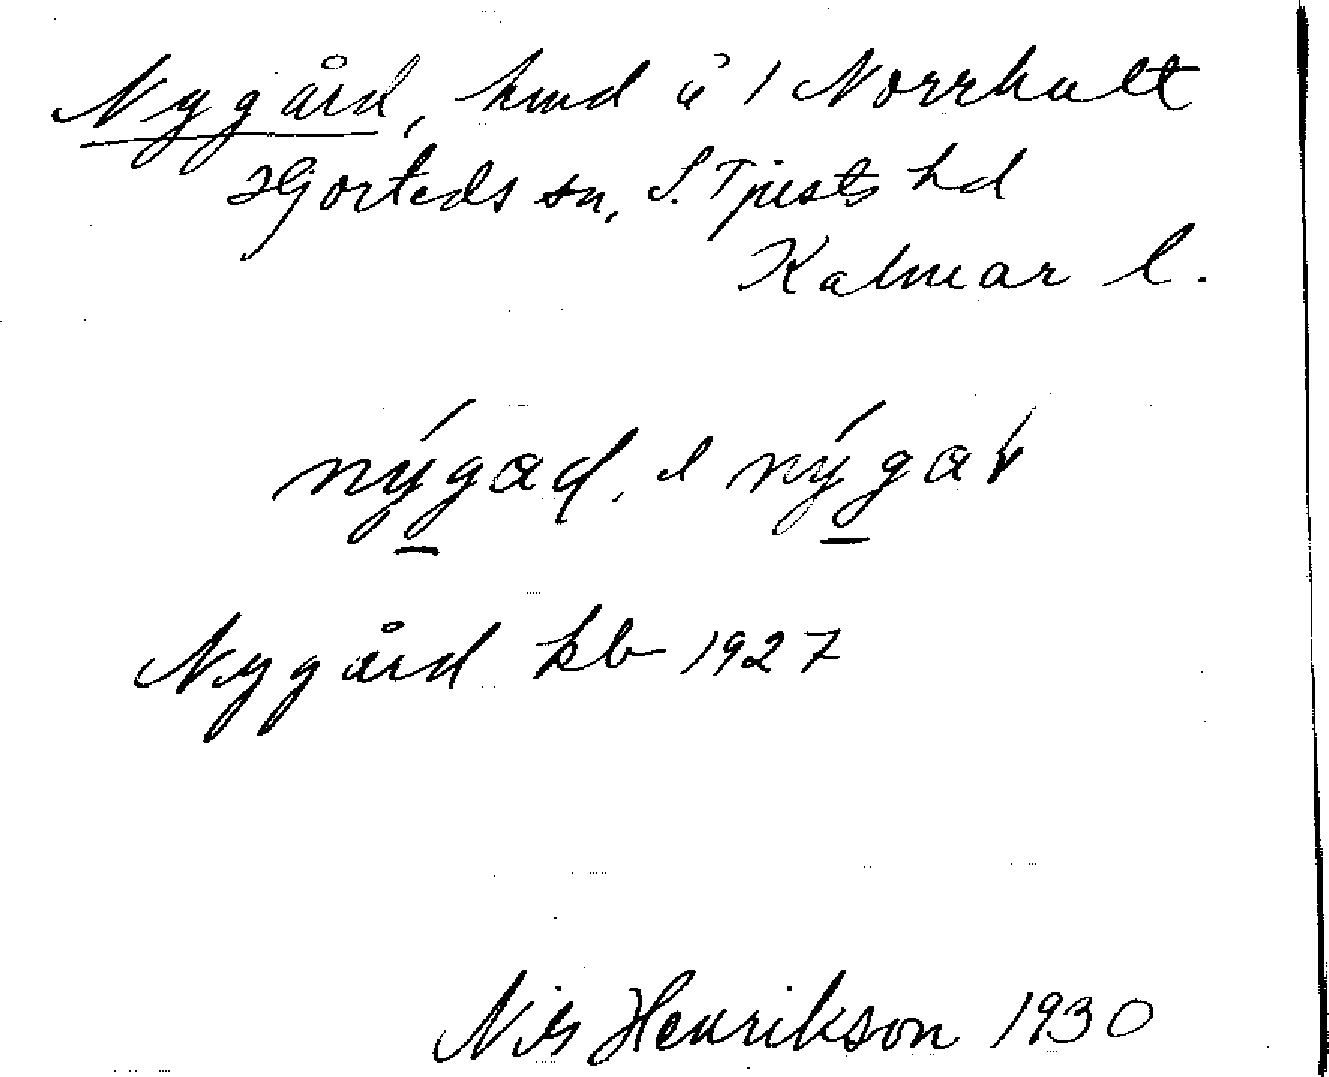 Nygård, hmd å 1 Norrhult
Hjorteds sn, S. Tjusts hd
Kalmar l.
nýgaɖ, l nýga
Nygård kb 1927
Nils Henrikson 1930